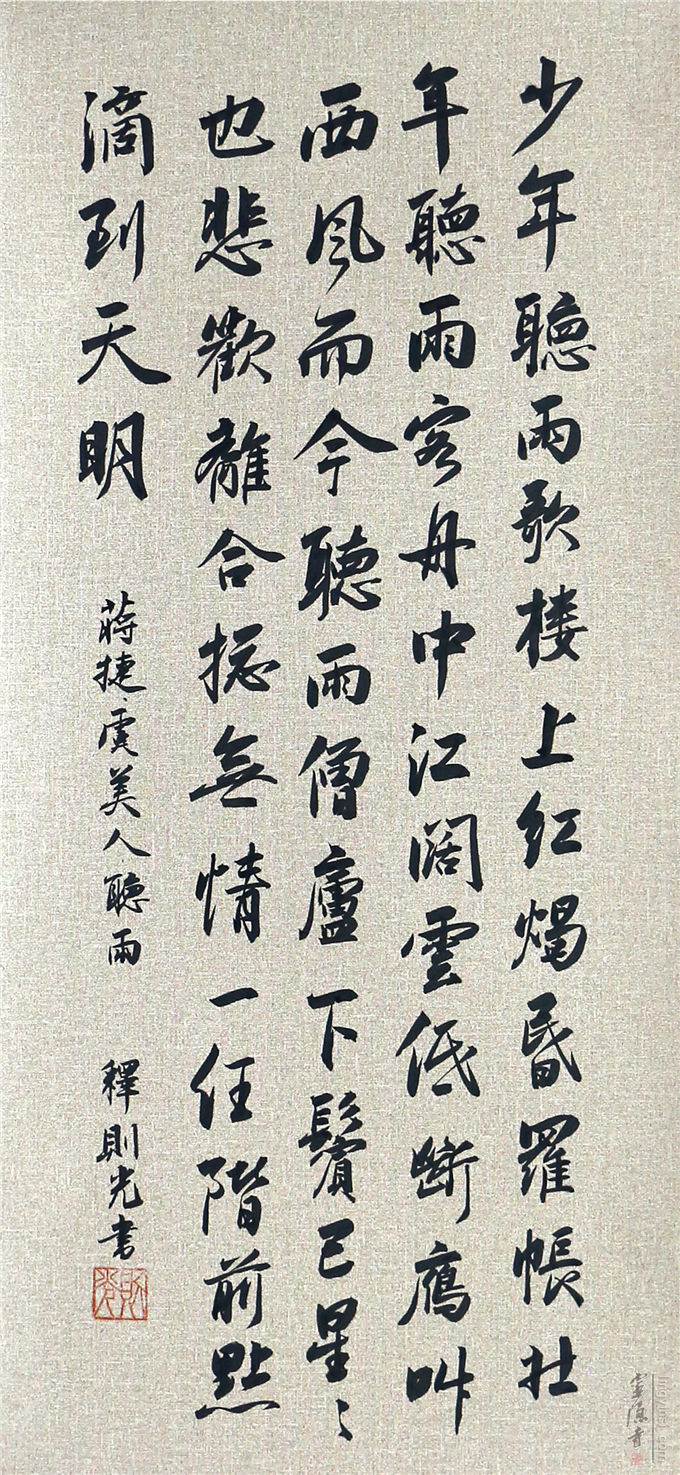 少年聽雨歌楼上红燭昏羅帳壮
年聽雨客舟中江阔雲低断鴈叫
西风而今聽雨僧廬下鬢已星〻
也悲歡離合捴無情一任階前點
滴到天明
蒋捷虞美人聽雨
釋則光书
則光